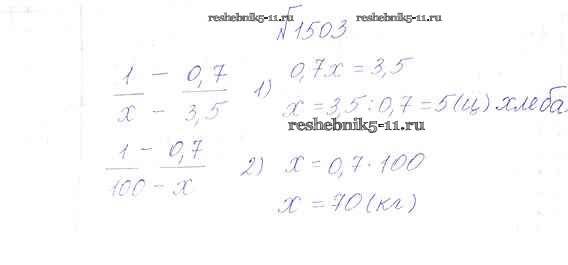 reshebnik5-11.ru reshebnik5-11.ru
№1503
1 - 0,7
x - 3,5
1) 0,7x = 3,5
x = 3,5 : 0,7 = 5(ц) хлеба.
reshebnik5-11.ru
1 - 0,7
100 - x
2) x = 0,7 · 100
x = 70 (кг)